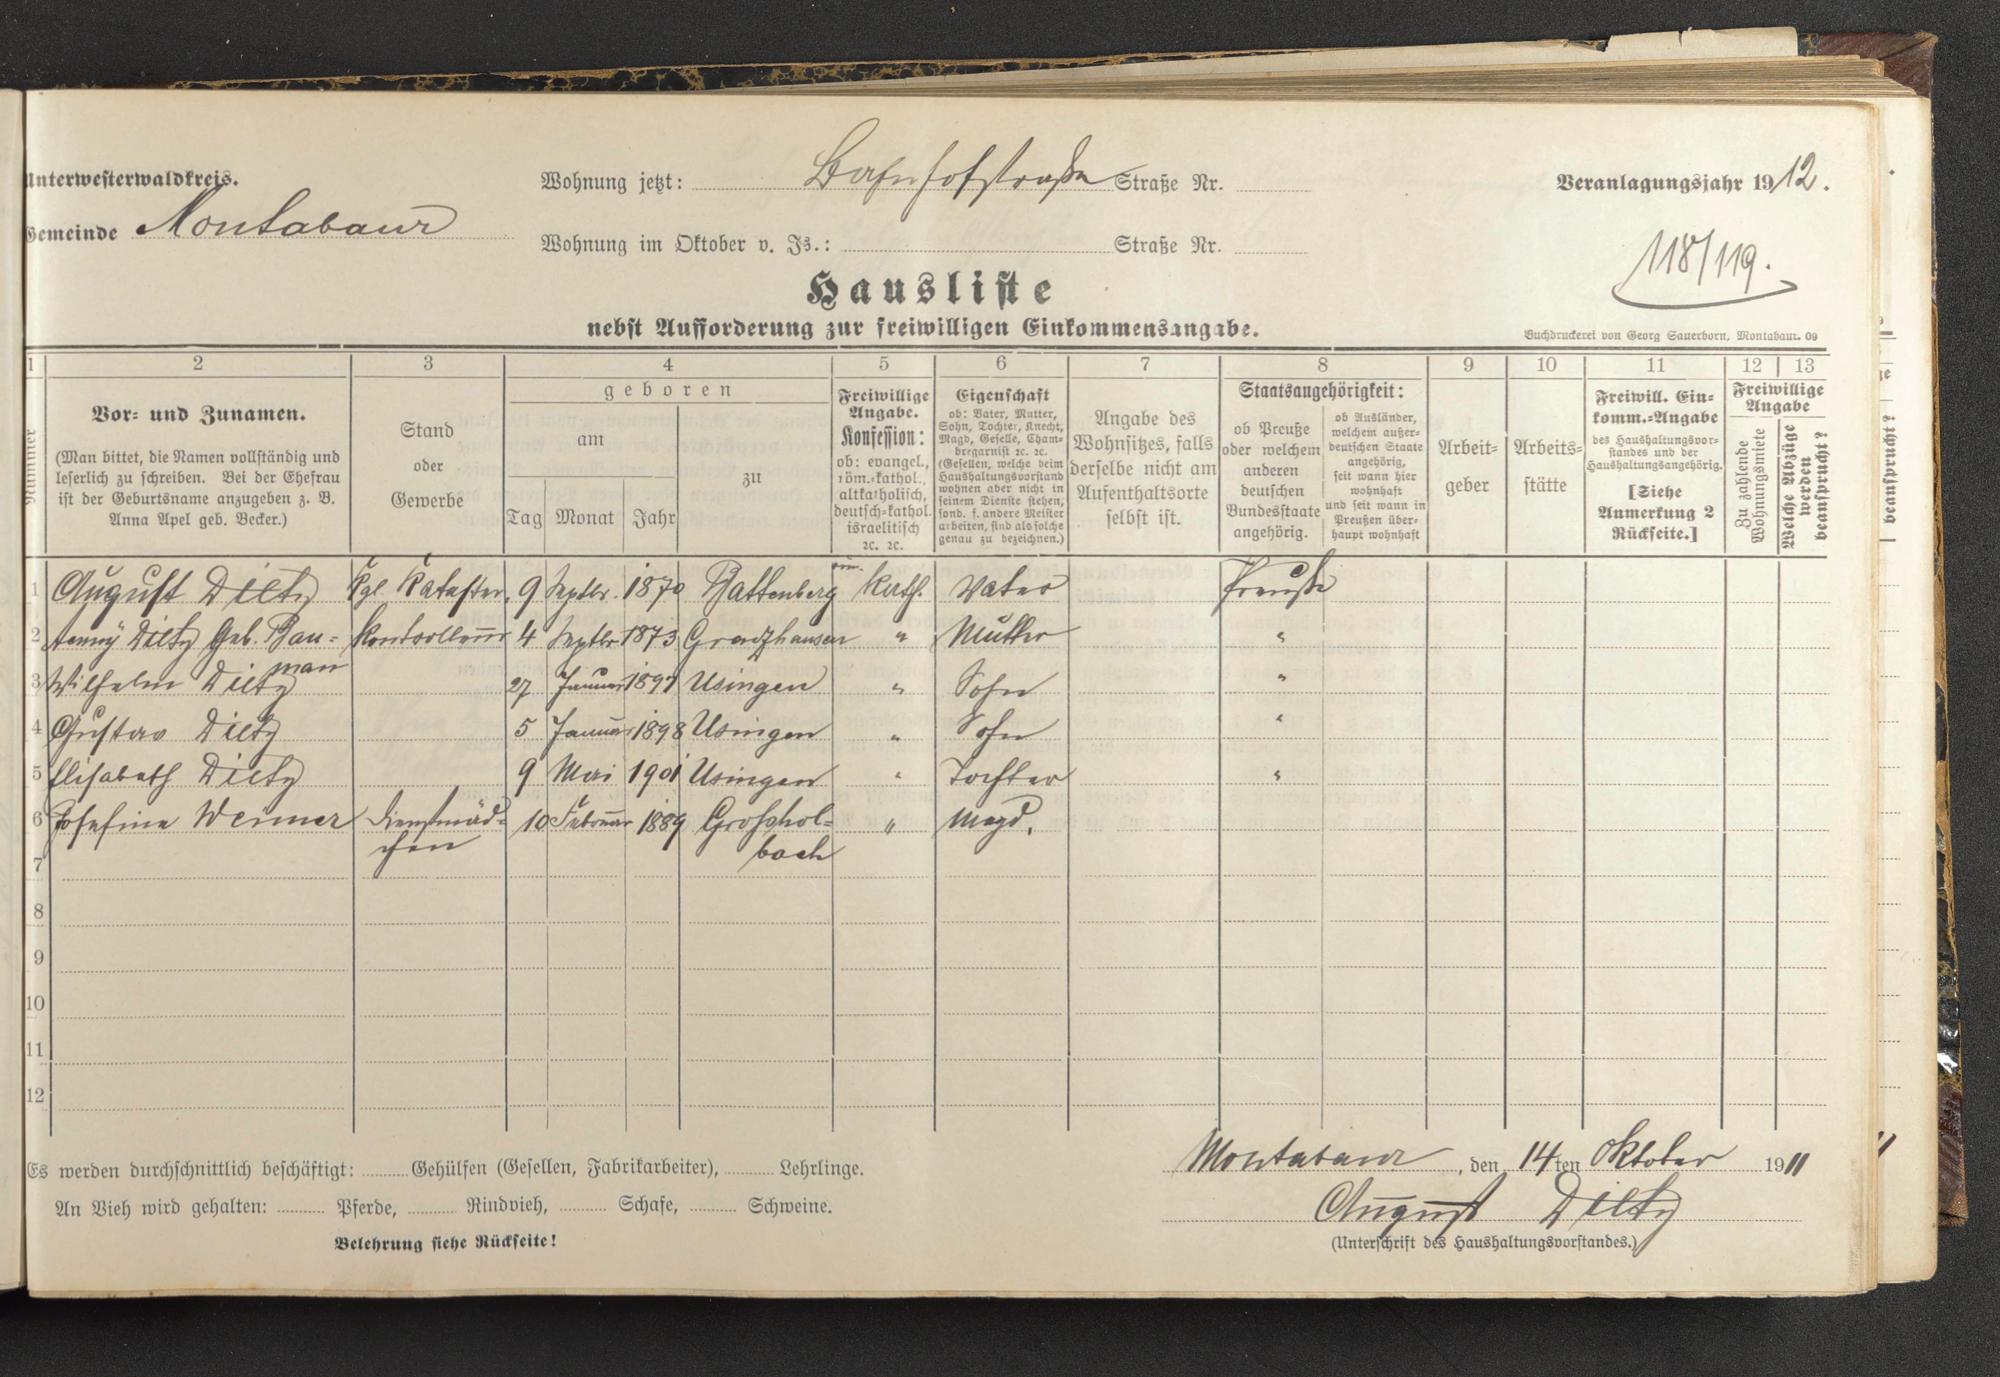 Unterwesterwaldkreis.
Wohnung jetzt: Bahnhofstraße Straße Nr.
Veranlagungsjahr 1912.
Gemeinde Montabaur
Wohnung im Oktober v. Js.: Straße Nr.
118/119.
Hausliste
nebst Aufforderung zur freiwilligen Einkommensangabe.
Buchdruckerei von Georg Sauerborn, Montabaur. 09
1 2 3 4 5 6 7 8 9 10 11 12 13
Nummer
Vor- und Zunamen.
(Man bittet, die Namen vollständig und
leserlich zu schreiben. Bei der Ehefrau
ist der Geburtsname anzugeben z. B.
Anna Apel geb. Becker.)
Stand
oder
Gewerbe
geboren
am
Tag Monat Jahr
zu
Freiwillige
Angabe.
Konfession:
ob: evangel.,
röm.-kathol.,
altkatholisch,
deutsch-kathol.
israelitisch
2c. 2c.
Eigenschaft
ob: Vater, Mutter,
Sohn, Tochter, Knecht,
Magd, Geselle, Cham-
bregarnist 2c. 2c.
(Gesellen, welche beim
Haushaltungsvorstand
wohnen aber nicht in
seinem Dienste stehen,
sond. f. andere Meister
arbeiten, sind als solche
genau zu bezeichnen.)
Angabe des
Wohnsitzes, falls
derselbe nicht am
Aufenthaltsorte
selbst ist.
Staatsangehörigkeit:
ob Preuße
oder welchem
anderen
deutschen
Bundesstaate
angehörig.
ob Ausländer,
welchem außer-
deutschen Staate
angehörig,
seit wann hier
wohnhaft
und seit wann in
Preußen über-
haupt wohnhaft
Arbeit-
geber
Arbeits-
stätte
Freiwill. Ein-
komm.-Angabe
des Haushaltungsvor-
standes und der
Haushaltungsangehörig.
[Siehe
Anmerkung 2
Rückseite.]
Freiwillige
Angabe
Zu zahlende
Wohnungsmiete
Welche Abzüge
werden
beansprucht?
beansprucht?
1 August Dietz Kgl. Kataster. 9 Septbr. 1870 Battenberg röm. kath. Vater Preuße
2 Dietz Geb. Bau= Kontrolleur 4 Septbr 1873 " Mutter "
man
3 Wilhelm Dietz 27 Januar 1897 Usingen " Sohn "
4 Gustav Dietz 5 Januar 1898 Usingen " Sohn "
5 Elisabeth Dietz 9 Mai 1901 Usingen " Tochter "
6 Josefine Weimer Dienstmäd= 10 Februar 1889 Großhol= " Magd.
7 chen bach
8
9
10
11
12
Es werden durchschnittlich beschäftigt: Gehülfen (Gesellen, Fabrikarbeiter), Lehrlinge.
Montabaur, den 14ten Oktober 1911
An Vieh wird gehalten: Pferde, Rindvieh, Schafe, Schweine.
August Dietz
Belehrung siehe Rückseite!
(Unterschrift des Haushaltungsvorstandes.)